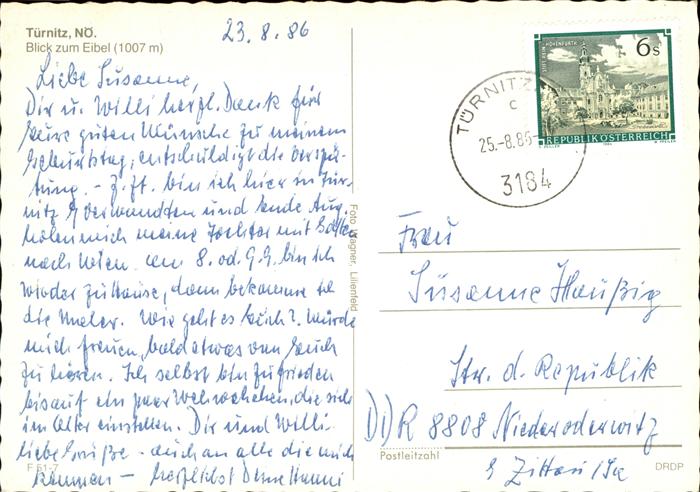 Türnitz, NÖ.
Blick zum Eibel (1007 m)
23. 8. 86
Liebe Susanne,
Dir u. Willi herzl. Dank für
Eure guten Wünsche zu meinem
Geburtstag, entschuldigt die Verspä-
tung. - Z. Zt. bin ich hier in Tür-
nitz b Verwandten und Ende Aug.
holen mich meine Tochter mit
nach Wien. Am 8. od. 9.9. bin ich
wieder zuhause, dann bekomme ich
die Maler. Wie geht es Euch? Würde
mich freuen, bald etwas von Euch
zu hören. Ich selbst bin zufrieden
bis auf ein paar Wehwehchen, die sich
im Alter einstellen. Dir und Willi
liebe Grüße - auch an alle die mich
kennen - herzlichst Deine Hanni
F 51-7
Foto Wagner, Lilienfeld
STIFT REIN HOHENFURTH
6 S
REPUBLIK ÖSTERREICH
TÜRNITZ
C
25.-8.86-
3184
Frau
Susanne Haußig
Str. d. Republik
DDR 8808 Niederoderwitz
Postleitzahl
Zittau/Sa
DRDP